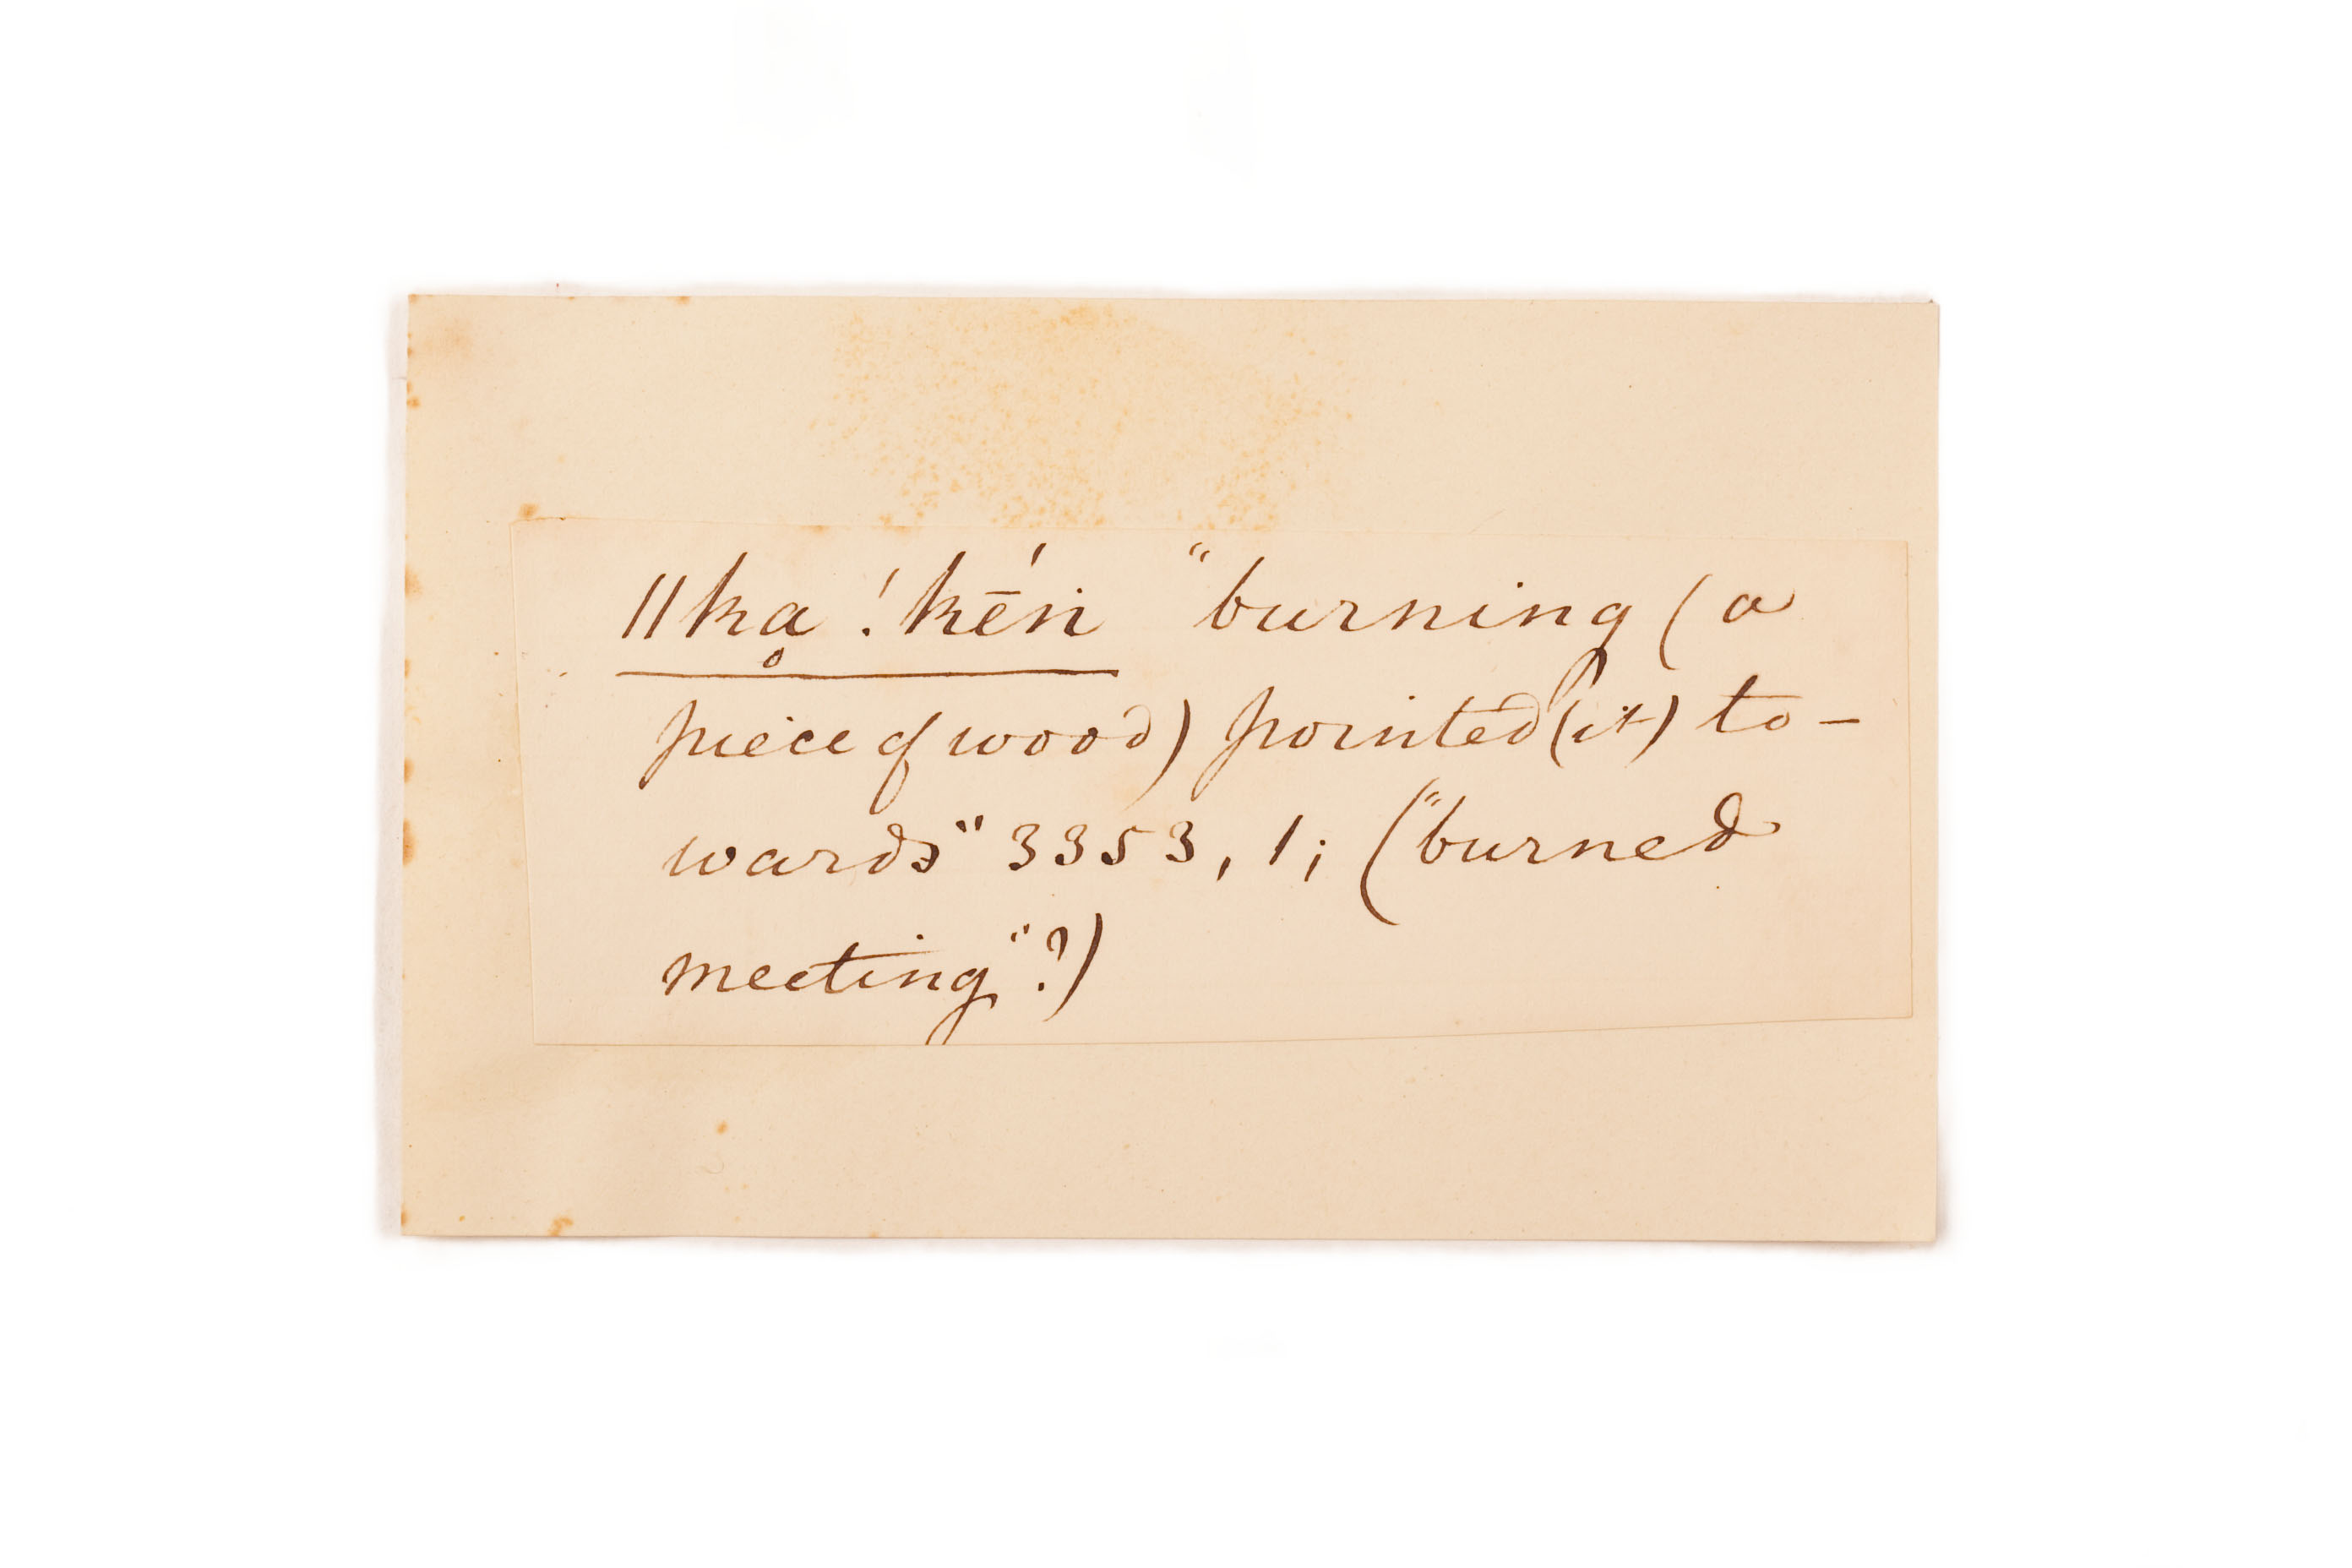 ǁkḁ !kḗṅ "burning (a
piece of wood) pointed (it) to-
wards" 3353, 1; ("burned
meeting"?)